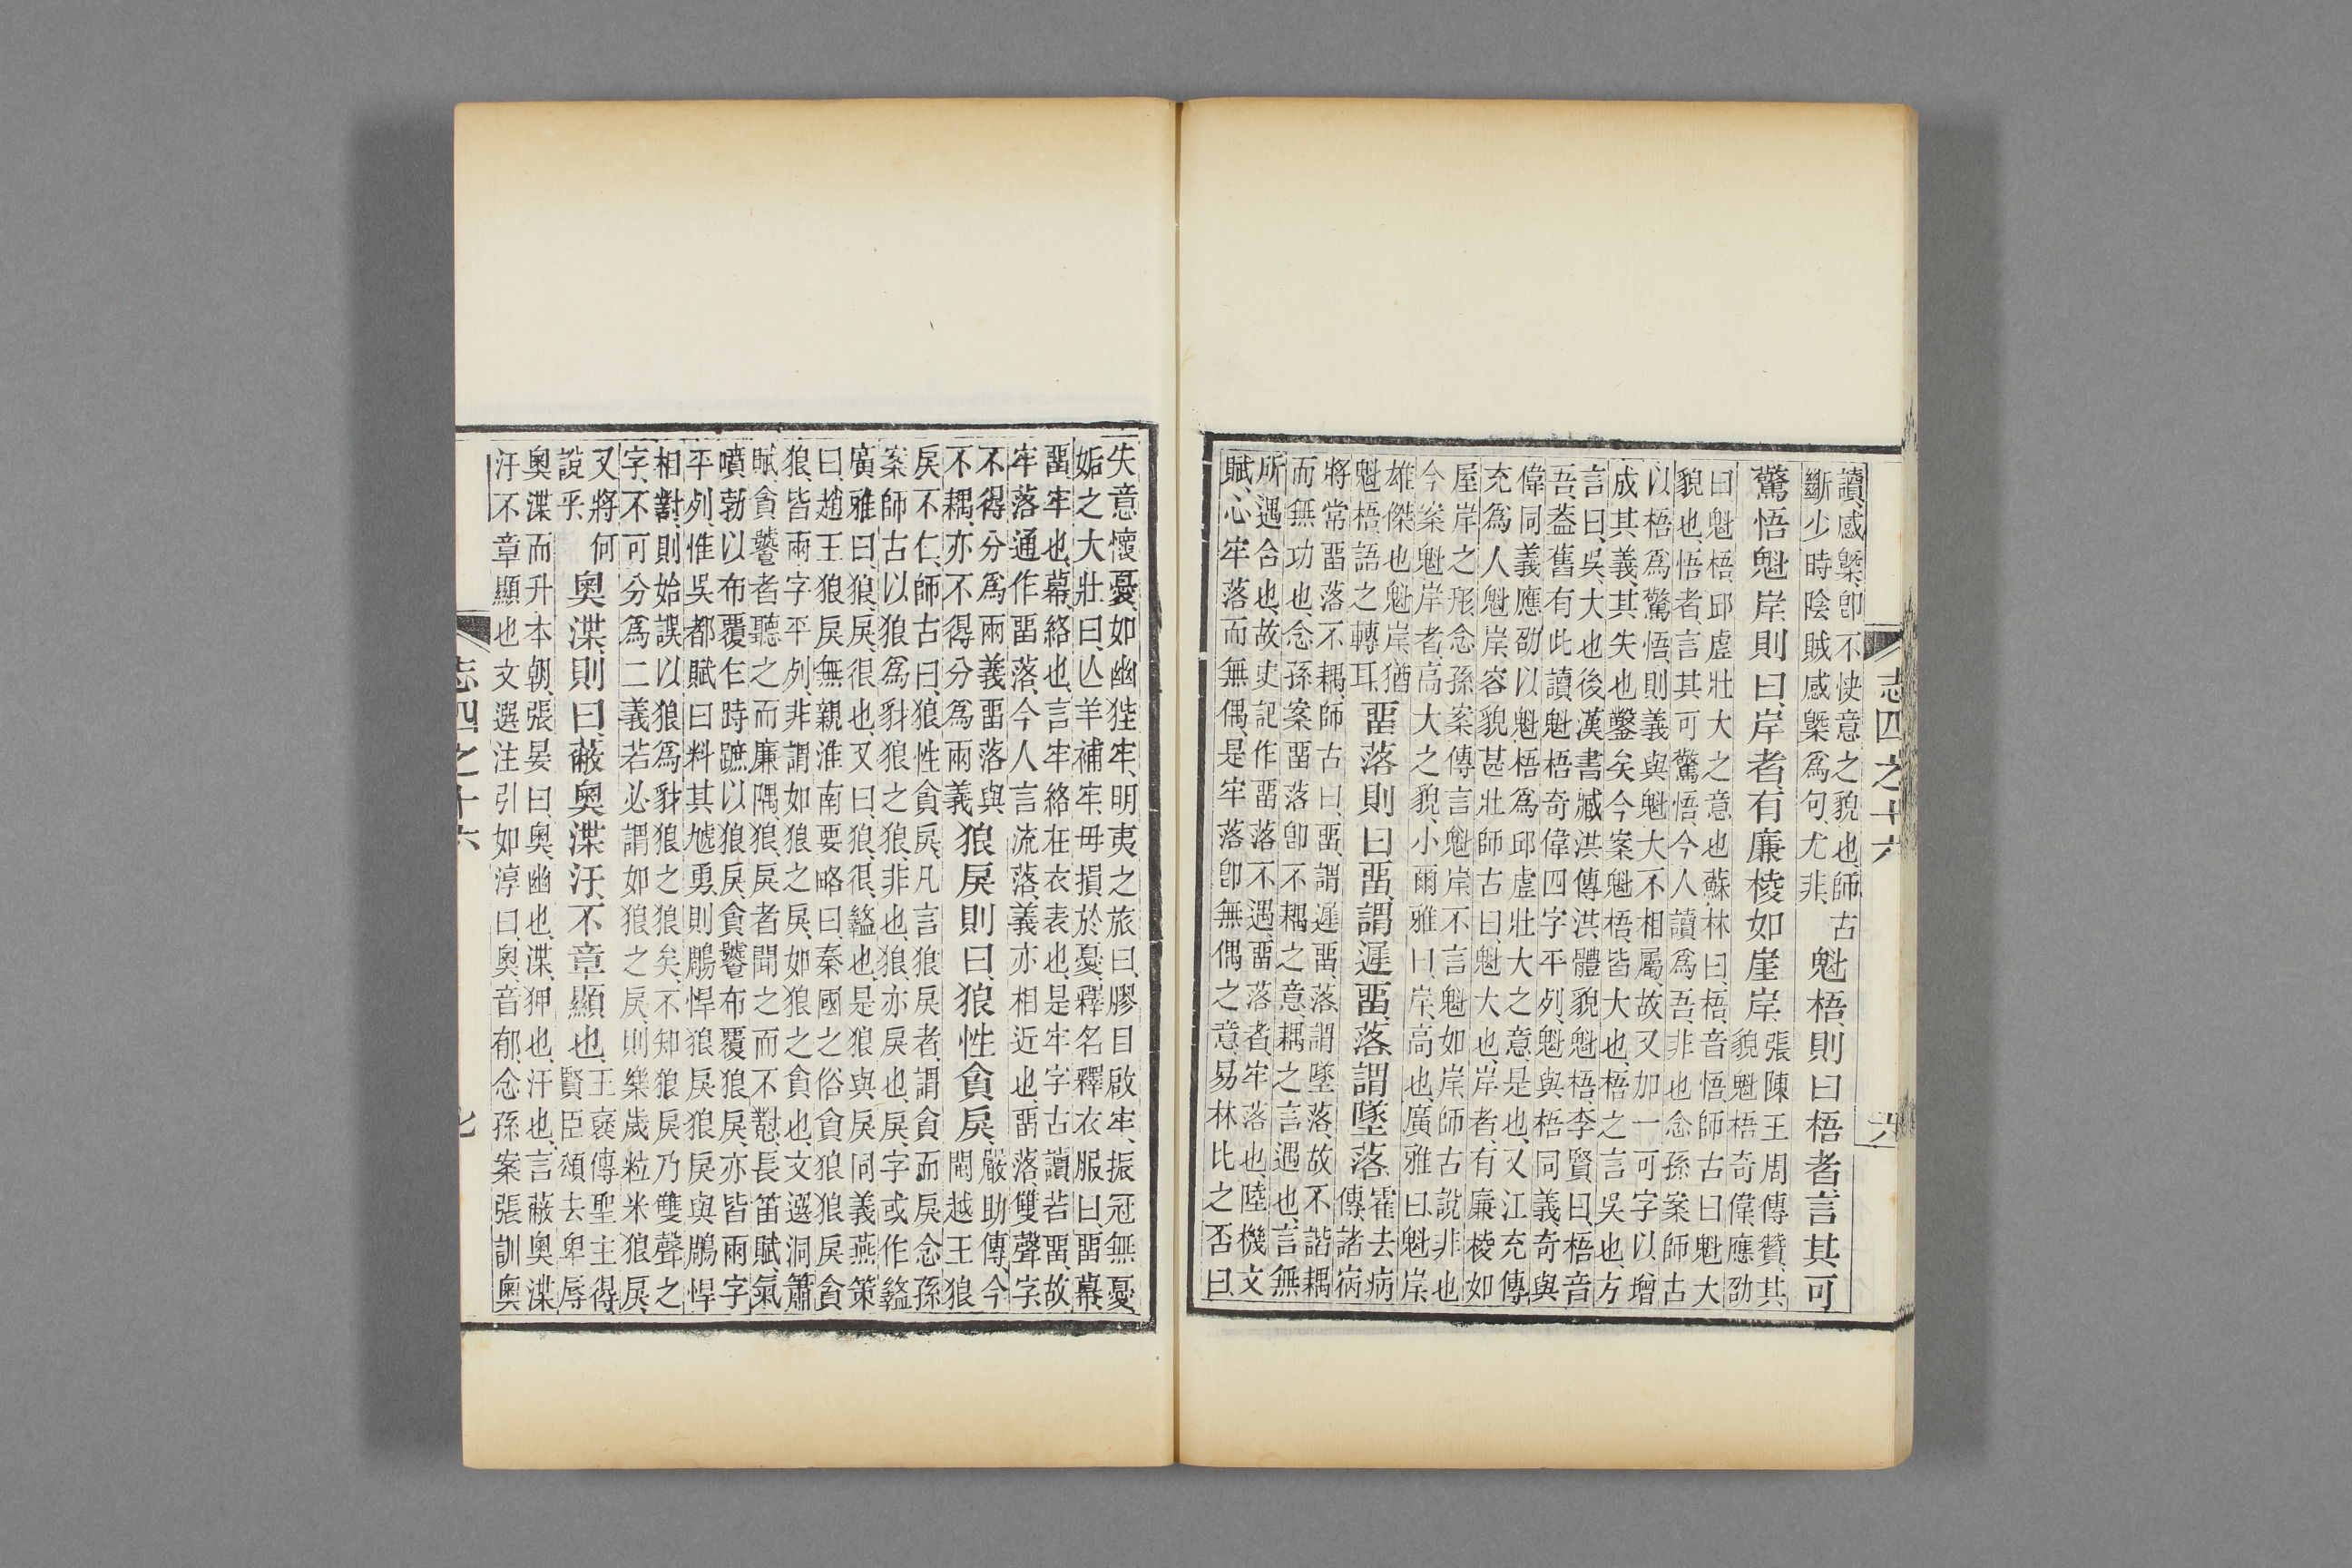 讀感槩卽不快意之貌也師古
斷少時陰賊感槩爲句尤非
魁梧則曰梧者言其可
驚悟魁岸則曰岸者有廉棱如崖岸
張陳王周傳贊其
貌魁梧奇偉應劭
曰魁梧邱虛壯大之意也蘇林曰梧音悟師古曰魁大
貌也悟者言其可驚悟今人讀爲吾非也念孫案師古
以梧爲驚悟則義與魁大不相屬故又加一可字以增
成其義其失也鑿矣今案魁梧皆大也梧之言吳也方
言曰吳大也後漢書臧洪傳洪體貌魁梧李賢曰梧音
吾葢舊有此讀魁梧奇偉四字平列魁與梧同義奇與
偉同義應劭以魁梧爲邱虛壯大之意是也又江充傳
充爲人魁岸容貌甚壯師古曰魁大也岸者有廉棱如
屋岸之形念孫案傳言魁岸不言魁如岸師古說非也
今案魁岸者高大之貌小爾雅曰岸高也廣雅曰魁岸
雄傑也魁岸猶
魁梧語之轉耳
畱落則曰畱謂遲畱落謂墜落
霍去病
傳諸宿
將常畱落不耦師古曰畱謂遲畱落謂墜落故不諧耦
而無功也念孫案畱落卽不耦之意耦之言遇也言無
所遇合也故史記作畱落不遇畱落者牢落也陸機文
賦心牢落而無偶是牢落卽無偶之意易林比之否曰
志四之十六
六
失意懷憂如幽狴牢明夷之旅曰膠目啟牢振冠無憂
姤之大壯曰亾羊補牢毋損於憂釋名釋衣服曰畱幕
畱牢也幕絡也言牢絡在衣表也是牢字古讀若畱故
牢落通作畱落今人言流落義亦相近也畱落雙聲字
不得分爲兩義畱落與
不耦亦不得分爲兩義
狼戾則曰狼性貪戾
嚴助傳今
閩越王狼
戾不仁師古曰狼性貪戾凡言狼戾者謂貪而戾念孫
案師古以狼爲豺狼之狼非也狼亦戾也戾字或作盭
廣雅曰狼戾很也又曰狼很盭也是狼與戾同義燕策
曰趙王狼戾無親淮南要略曰秦國之俗貪狼狼戾貪
狼皆兩字平列非謂如狼之戾如狼之貪也文選洞簫
賦貪饕者聽之而廉隅狼戾者聞之而不懟長笛賦氣
噴勃以布覆乍跱蹠以狼戾貪饕布覆狼戾亦皆兩字
平列惟吳都賦曰料其虓勇則鵰悍狼戾狼戾與鵰悍
相對則始誤以狼爲豺狼之狼矣不知狼戾乃雙聲之
字不可分爲二義若必謂如狼之戾則樂歲粒米狼戾
又將何
說乎
奧渫則曰蔽奧渫汙不章顯也
王襃傳聖主得
賢臣頌去卑辱
奧渫而升本朝張晏曰奧幽也渫狎也汙也言蔽奧渫
汙不章顯也文選注引如淳曰奧音郁念孫案張訓奧
志四之十六
七